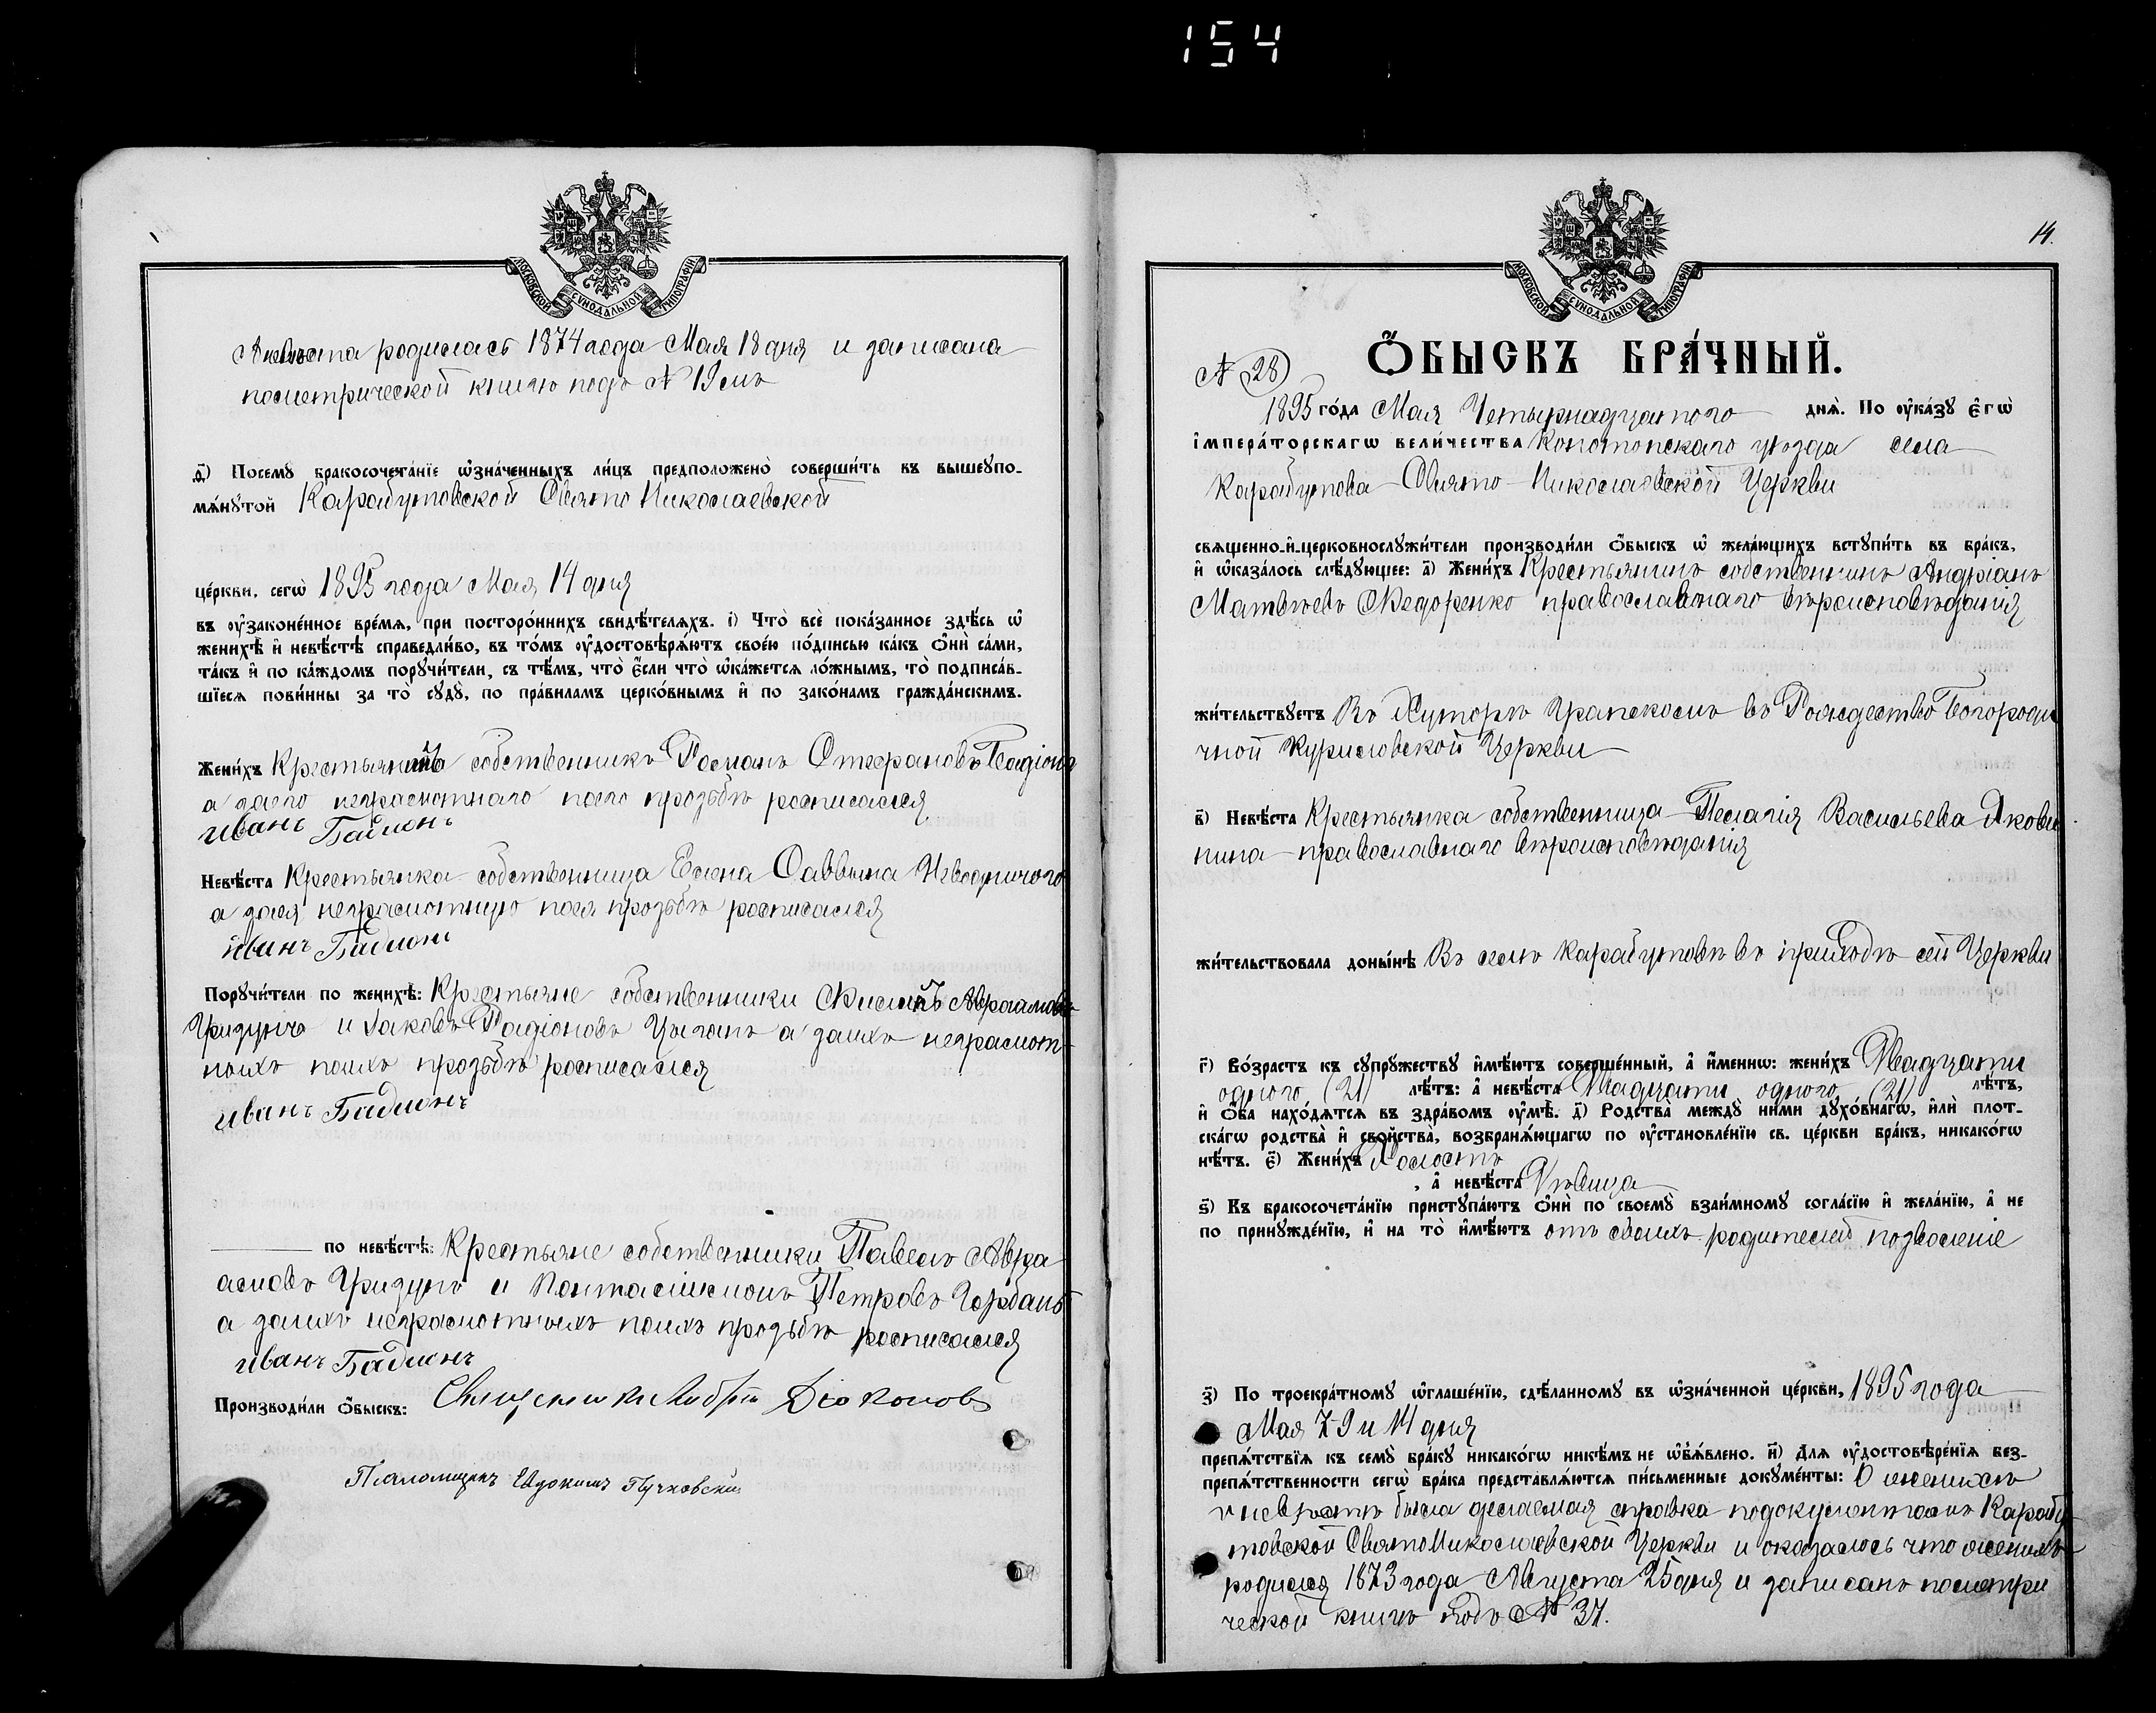 154
МОСКОВСКОЙ СУНОДАЛЬНОЙ ТИПОГРАФІИ
А невѣста родилась 1874 года Мая 18 дня и записана
пометрической книгѣ подъ № 19 мъ
д҃) Посемꙋ бракосочета́нїе ѡ҆зна́ченныхъ ли́цъ предположено̀ соверши́ть въ вышеꙋпо-
мѧ́нꙋтой Карабутовской Свято Николаевской
це́ркви, сегѡ̀ 1895 года Мая 14 дня
въ ᲂу҆законе́нное вре́мѧ, при посторо́ннихъ свидѣ́телѧхъ. і҃) Что̀ всѐ пока́занное здѣ́сь ѡ҆
женихѣ̀ и҆ невѣ́стѣ справедли́во, въ то́мъ ᲂу҆достовѣрѧ́ютъ свое́ю по́дписью ка́къ ѻ҆нѝ са́ми,
та́къ и҆ по ка́ждомъ порꙋчи́тели, съ тѣ́мъ, что̀ є҆́сли что̀ ѡ҆ка́жетсѧ ло́жнымъ, то̀ подписа́в-
шїесѧ пови́нны за то̀ сꙋдꙋ̀, по пра́виламъ церко́внымъ и҆ по зако́намъ гражда́нскимъ.
Жени́хъ Крестьянинъ собственникъ Романъ Стефановъ
а заего неграмотнаго поего прозьбѣ росписался
Иванъ Бадіонъ
Невѣ́ста Крестьянка собственница Елена Саввина
а зоея неграмотную поея прозьбѣ росписался
Иванъ Бадіонъ
Порꙋчи́тели по женихѣ̀: Крестьяне собственники Аврамовъ
Гридунъ и Іаковъ Радіоновъ Цыганъ а заихъ неграмот-
ныхъ поихъ прозьбѣ росписался
Иванъ Бадіонъ
по невѣ́стѣ: Крестьяне собственники Павелъ Авра
амовъ Гридунъ и Понталіимонъ Петровъ Горбань
а заихъ неграмотныхъ поихъ прозьбѣ росписался
Иванъ Бадіонъ
Производи́ли ѻ҆́быскъ: Священникъ Діаконовъ
Псаломщикъ Евдокимъ Пучковскій
14.
МОСКОВСКОЙ СУНОДАЛЬНОЙ ТИПОГРАФІИ
Ѻ҆́БЫСКЪ БРА́ЧНЫЙ.
№ 28
1895 го́да Мая Четырнадцатого днѧ̀. По ᲂу҆ка́зꙋ є҆гѡ̀
і҆мпера́торскагѡ вели́чества Конотопскаго уѣзда села
Карабутова Свято-Николаевской Церкви
свѧщенно-и҆-церковнослꙋжи́тели производи́ли ѻ҆́быскъ ѡ҆ жела́ющихъ встꙋпи́ть въ бра́къ,
и҆ ѡ҆каза́лось слѣ́дꙋющее: а҃) Жени́хъ Крестьянинъ собственникъ Андріанъ
Матвѣевъ Ѳедоренко православнаго вѣроисповѣданія
жи́тельствꙋетъ Въ Хуторѣ въ Рождество Богороди
чной Церкви
в҃) Невѣ́ста Крестьянка собственница Пелагія Васильева
православнаго вѣроисповѣданія
жи́тельствовала доны́нѣ Въ селѣ Карабутовѣ въ приходѣ сей Церкви
г҃) Во́зрастъ къ сꙋпрꙋ́жествꙋ и҆мѣ́ютъ соверше́нный, а҆ и҆́меннѡ: жени́хъ Двадцати
одного (21) лѣ́тъ: а҆ невѣ́ста Двадцати одного (21) лѣ́тъ,
и҆ ѻ҆́ба нахо́дѧтсѧ въ здра́вомъ ᲂу҆мѣ̀. д҃) Родства̀ междꙋ̀ ни́ми дꙋхо́внагѡ, и҆лѝ плот-
ска́гѡ родства̀ и҆ сво́йства, возбранѧ́ющагѡ по ᲂу҆становле́нїю св. це́ркви бра́къ, никако́гѡ
нѣ́тъ. є҃) Жени́хъ Холостъ
, а҆ невѣ́ста Дѣвица
ѕ҃) Къ бракосочета́нїю пристꙋпа́ютъ ѻ҆нѝ по своемꙋ̀ взаи́мномꙋ согла́сїю и҆ жела́нїю, а҆ не
по принꙋжде́нїю, и҆ на то̀ и҆мѣ́ютъ отъ своихъ родителей позволеніе
з҃) По троекра́тномꙋ ѡ҆глаше́нїю, сдѣ́ланномꙋ въ ѡ҆зна́ченной це́ркви, 1895 года
Мая 7 9 и 14 дня
препѧ́тствїѧ къ семꙋ̀ бра́кꙋ никако́гѡ никѣ́мъ не ѡ҆бѧ́влено. и҃) Длѧ ᲂу҆достовѣре́нїѧ без-
препѧ́тственности сегѡ̀ бра́ка представлѧ́ютсѧ пи́сьменные докꙋме́нты: О женихѣ
и невѣстѣ была дѣлаемая справка подокументамъ Карабу-
товской СвятоНиколаевской Церкви и оказалось что женихъ
родился 1873 года Августа 25 дня и записанъ пометри
ческой книгѣ подъ № 37.